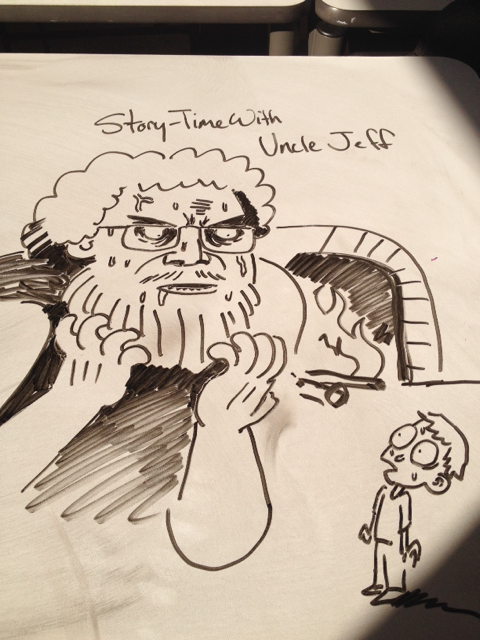 Story-Time With
Uncle Jeff